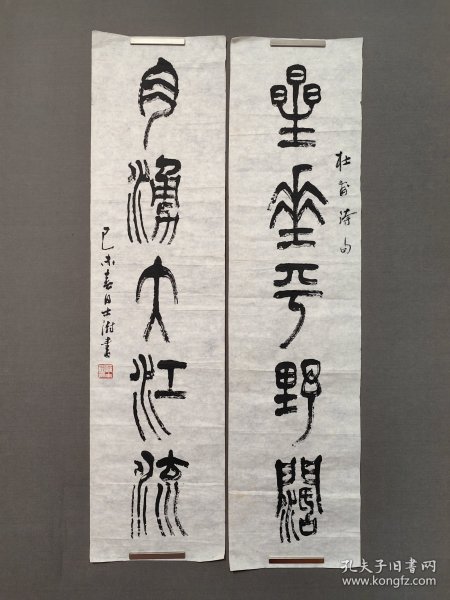 星垂平野闊
杜甫詩句
月湧大江流
己未春日士澍書
孔夫子旧书网
www.kongfz.com